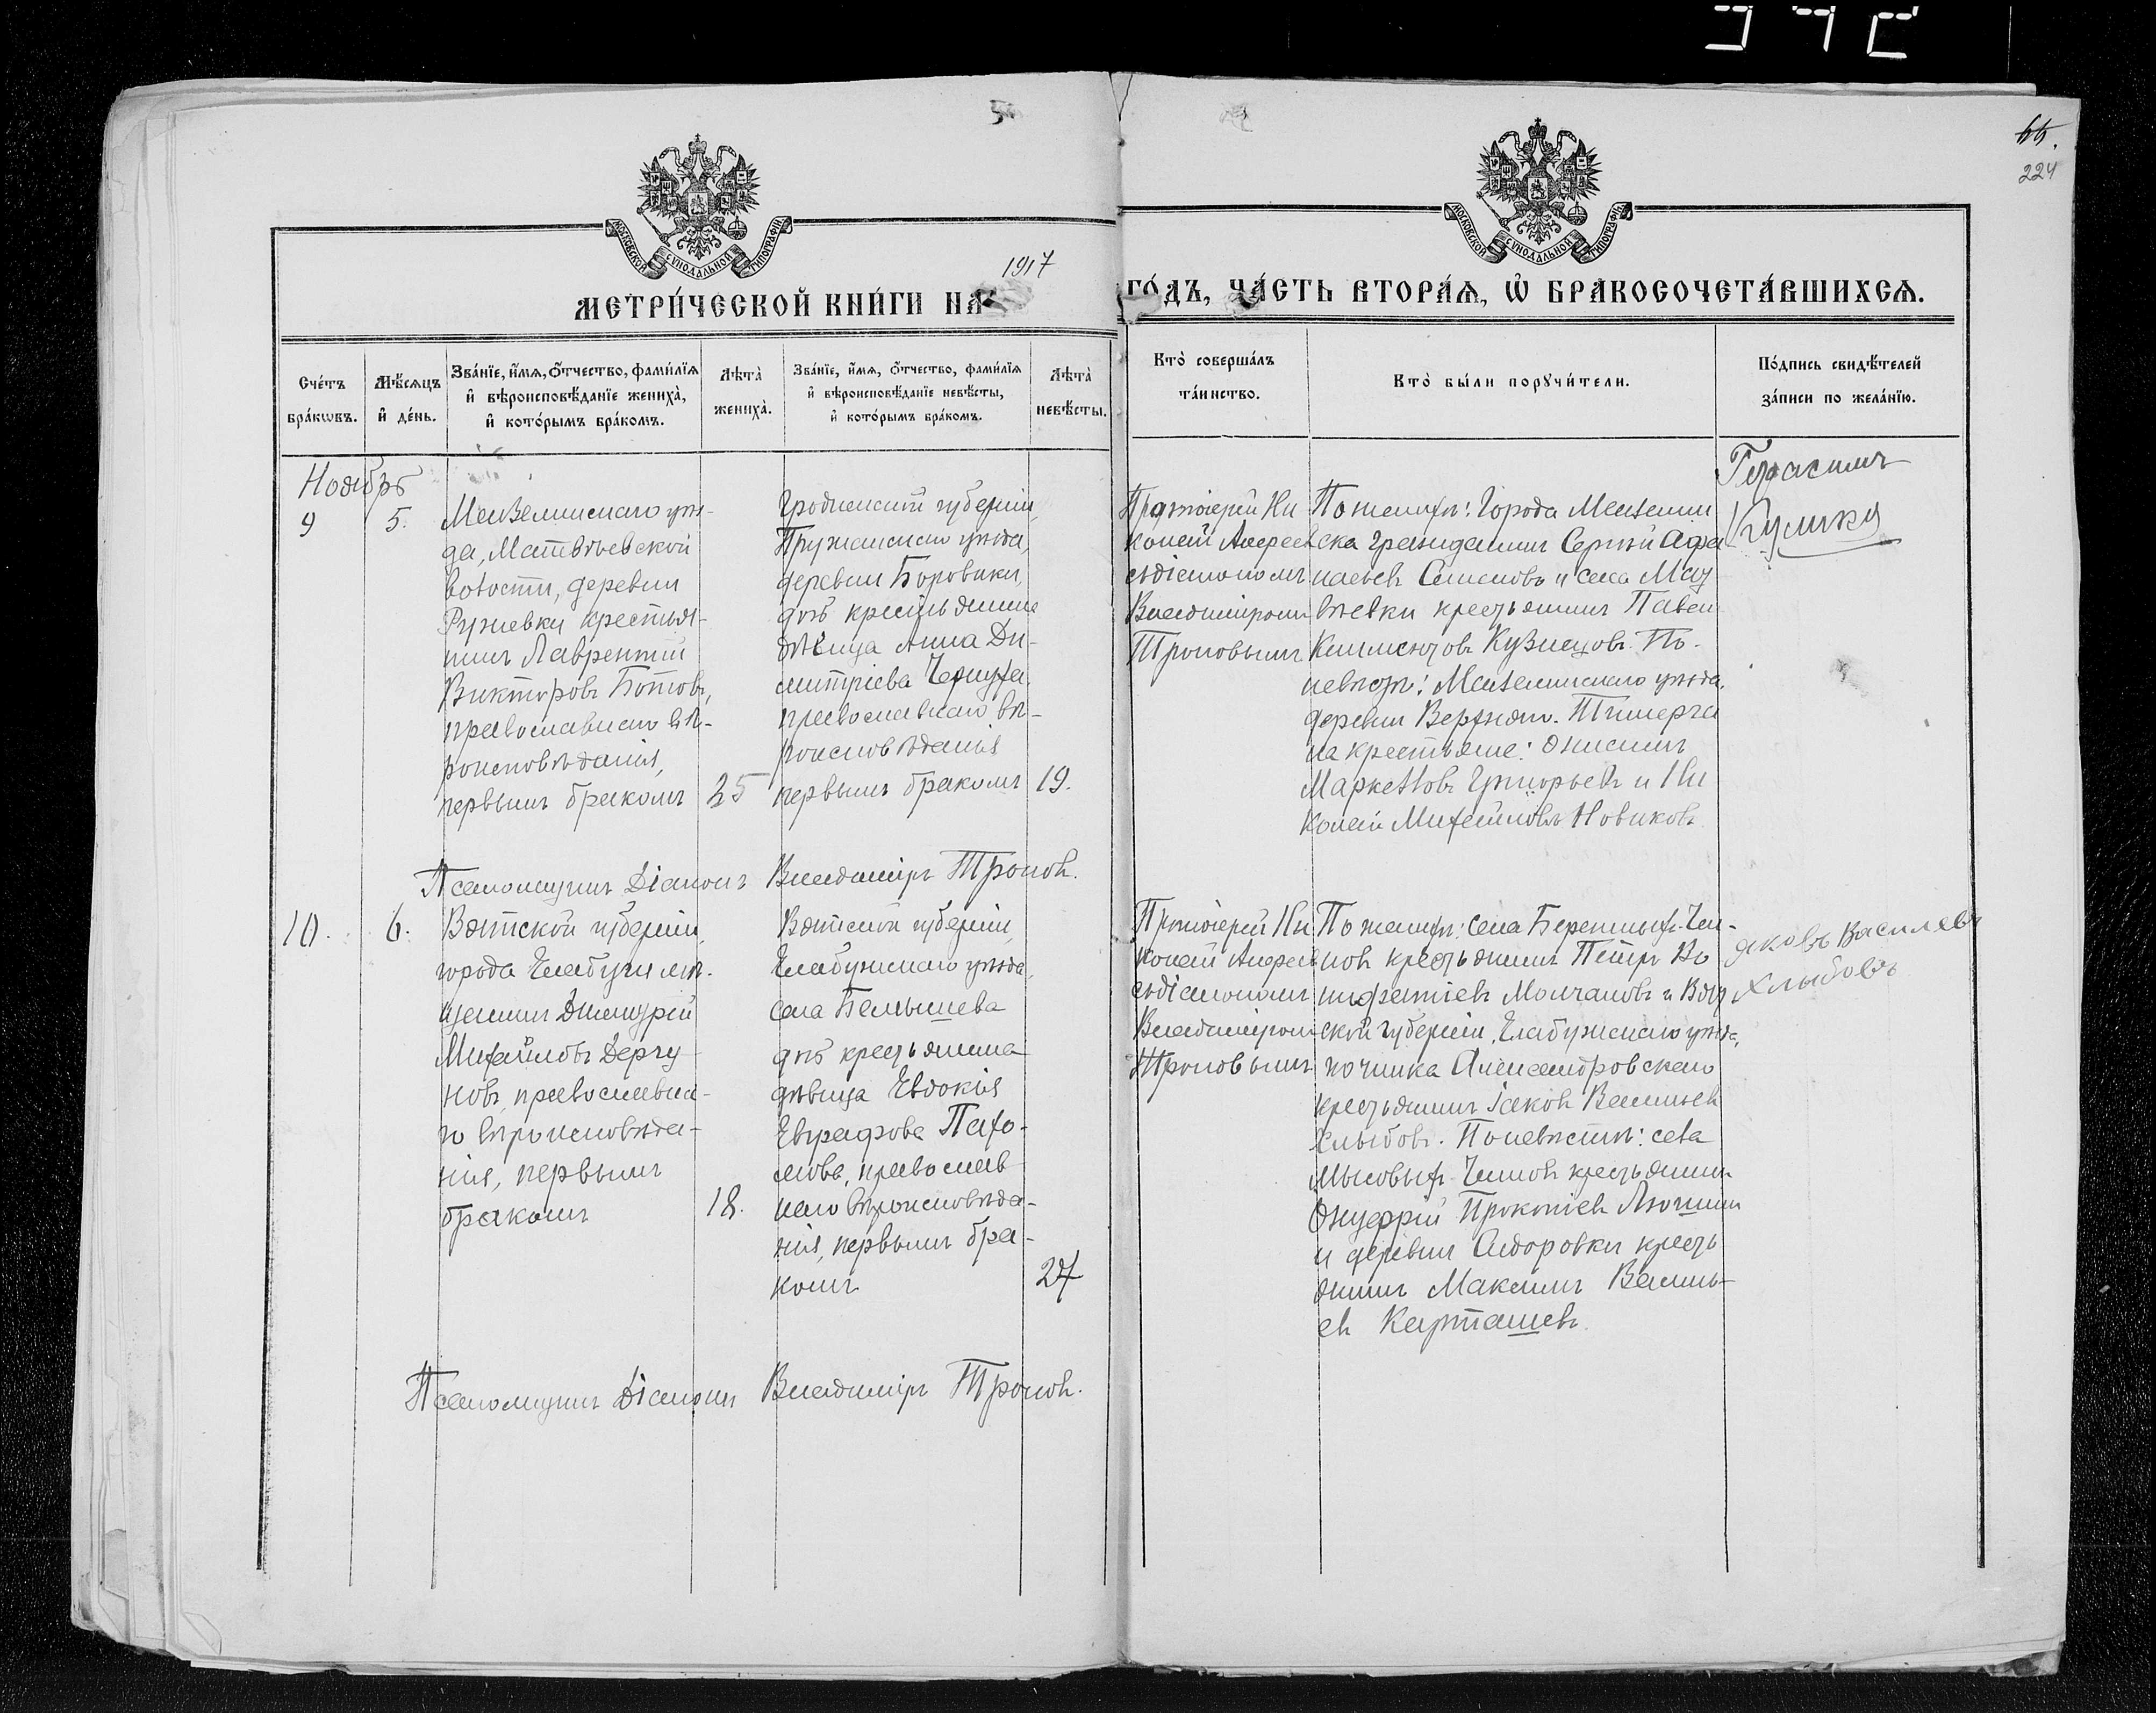 66.
224
МОСКОВСКОЙ СѴНОДАЛЬНОЙ ТИПОГРАФІИ
МОСКОВСКОЙ СѴНОДАЛЬНОЙ ТИПОГРАФІИ
1917
МЕТРИ́ЧЕСКОЙ КНИ́ГИ НА
ГО́ДЪ, ЧА́СТЬ ВТОРА́Ѧ, Ѽ БРАКОСОЧЕТА́ВШИХСѦ.
Сче́тъ
бра́кѡвъ.
Мѣ́сѧцъ
и҆ де́нь.
Зва́нїе, и҆́мѧ, ѻ҆́тчество, фами́лїѧ
и҆ вѣроисповѣ́данїе жениха̀,
и҆ кото́рымъ бра́комъ.
Лѣта̀
жениха̀.
Зва́нїе, и҆́мѧ, ѻ҆́тчество, фами́лїѧ
и҆ вѣроисповѣ́данїе невѣ́сты,
и҆ кото́рымъ бра́комъ.
Лѣта̀
невѣ́сты.
Кто̀ соверша́лъ
та́инство.
Кто̀ бы́ли порꙋчи́тели.
По́дпись свидѣ́телей
за́писи по жела́нїю.
Ноябрь
9
5.
Мензелинскаго уѣз-
да, Матвѣевской
волости, деревни
Ружевки крестья-
нинъ Лаврентій
Викторовъ Ботовъ,
православнаго вѣ-
роисповѣданія,
первымъ бракомъ
25
Гродненской губерніи,
Пружанскаго уѣзда,
деревни Боровики,
дочь крестьянина
дѣвица Анна Ди-
митріева
православнаго вѣ-
роисповѣданія
первымъ бракомъ
19.
Протоіерей Ни
колай Андреев
съ діакономъ
Владиміромъ
Троповымъ
По женихѣ: Города Мензелин
ска гражданинъ Сергѣй Афа
насьевъ Семеновъ и села Мат
вѣевки крестьянинъ Павелъ
Климентовъ Кузнецовъ. По
невѣстѣ: Мензелинскаго уѣзда,
деревни Верхняго Тимерга
на крестьяне: Онисимъ
Маркеловъ Григорьевъ и Ни
колай Михайловъ Новиковъ
Герасимъ
Кулику
Псаломщикъ Діаконъ Владиміръ Троповъ.
10.
6.
Вятской губерніи,
города Елабуги мѣ-
щанинъ Димитрій
Михайловъ Дергу
новъ, православна-
го вѣроисповѣда-
нія, первымъ
бракомъ
18.
Вятской губерніи,
Елабужскаго уѣзда,
села Бемышева
дочь крестьянина
дѣвица Евдокія
Евграфова Пахо-
мова, православ
наго вѣроисповѣда-
нія, первымъ бра-
комъ
27
Протоіерей Ни
колай Андреев
съ діакономъ
Владиміромъ
Троповымъ
По женихѣ: села Бережныхъ Чел-
новъ крестьянинъ Петръ Во
нифатіевъ Молчановъ и Вят
ской губерніи, Елабужскаго уѣзда,
починка Александровскаго
крестьянинъ Іаковъ Васильевъ
Хлыбовъ. По невѣстѣ: села
Мысовыхъ Челновъ крестьянинъ
Онуфрій Прокопіевъ Люшинъ
и деревни Сидоровки кресть
янинъ Максимъ Василь-
евъ Карташевъ.
Яковъ Василевъ
Хлыбовъ
Псаломщикъ Діаконъ Владиміръ Троповъ.